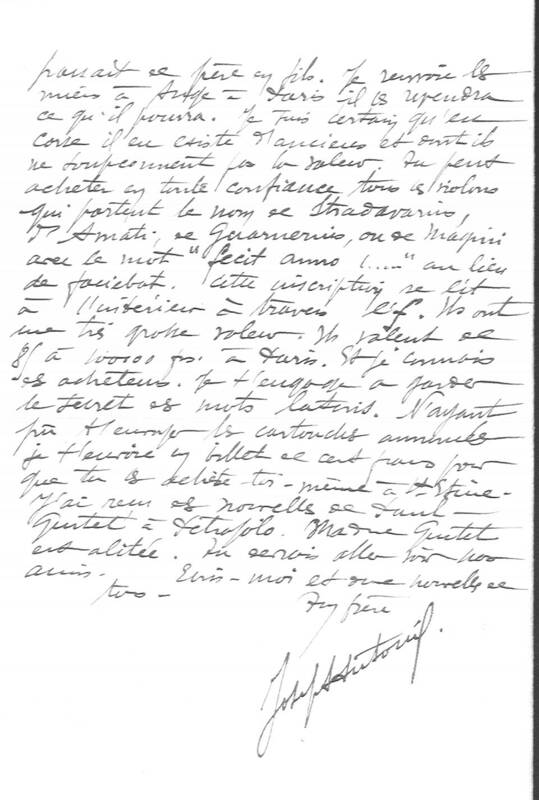 passait de père en fils. Je renvoie les
miens à Ange à Paris il les reprendra
ce qu'il pourra. Je suis certain qu'en
Corse il en existe d'anciens et dont ils
ne soupçonnent pas la valeur. Tu peux
acheter en toute confiance tous les violons
qui portent le nom de Stradavarius,
d'Amati, de Guarnerius, ou de Magini
avec le mot "fecit anno 1....." au lieu
de faciebat. Cette inscription se lit
à l'intérieur à travers l'f. Ils ont
une très grosse valeur. Ils valent de
à 100000 frs. à Paris. Et je connais
des acheteurs. Je t'engage à garder
le secret des mots latins. N'ayant
pu t'envoyer les cartouches annoncées
je t'envoie un billet de cent francs pour
que tu les achète toi-même à St Etienne-
J'ai reçu des nouvelles de
à Madme
est alitée. Tu devrais aller voir nos
amis. Ecris-moi et donne nouvelles de
tous -
Ton frère